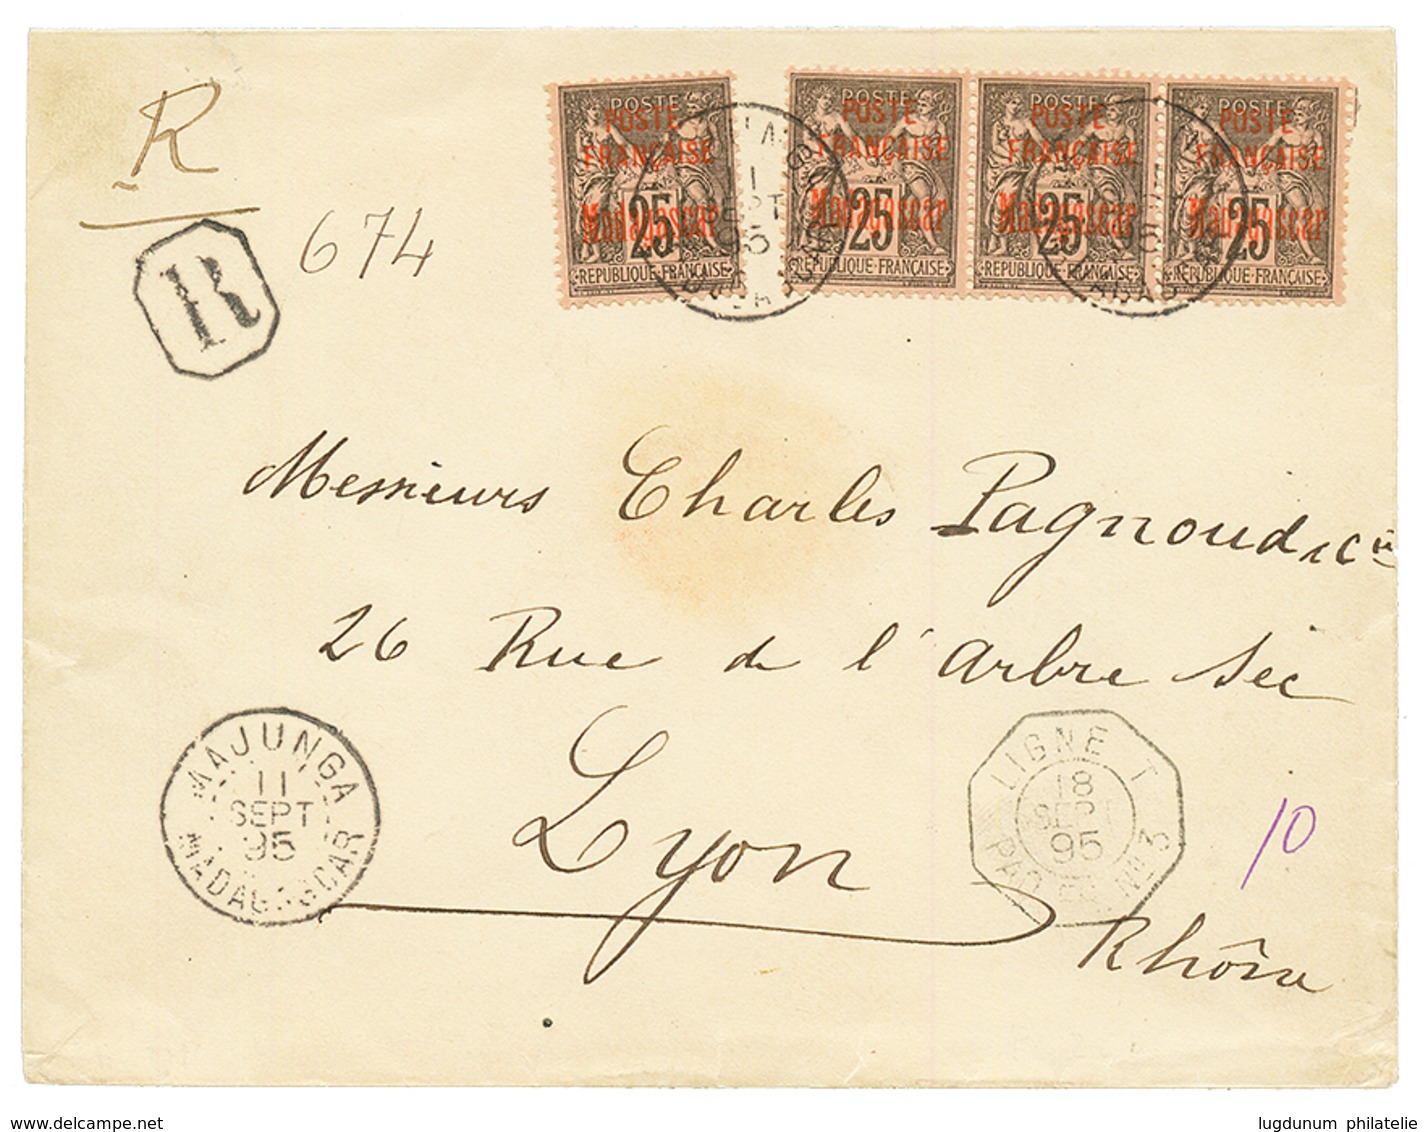 R
674
R
POSTE
POSTE
FRANÇAISE
Madagascar
25
REPUBLIQUE FRANÇAISE
POSTE
POSTE
FRANÇAISE
Madagascar
25
REPUBLIQUE FRANÇAISE
POSTE
POSTE
FRANÇAISE
Madagascar
25
REPUBLIQUE FRANÇAISE
POSTE
POSTE
FRANÇAISE
Madagascar
25
REPUBLIQUE FRANÇAISE
Messieurs Charles Pagnoud & Cie
26 Rue de l'Arbre Sec
Lyon
Rhône
MAJUNGA
11
SEPT
95
MADAGASCAR
LIGNE T
18
SEPT
95
PAQ. FR. Nº 3
10
www.delcampe.net
lugdunum philatelie